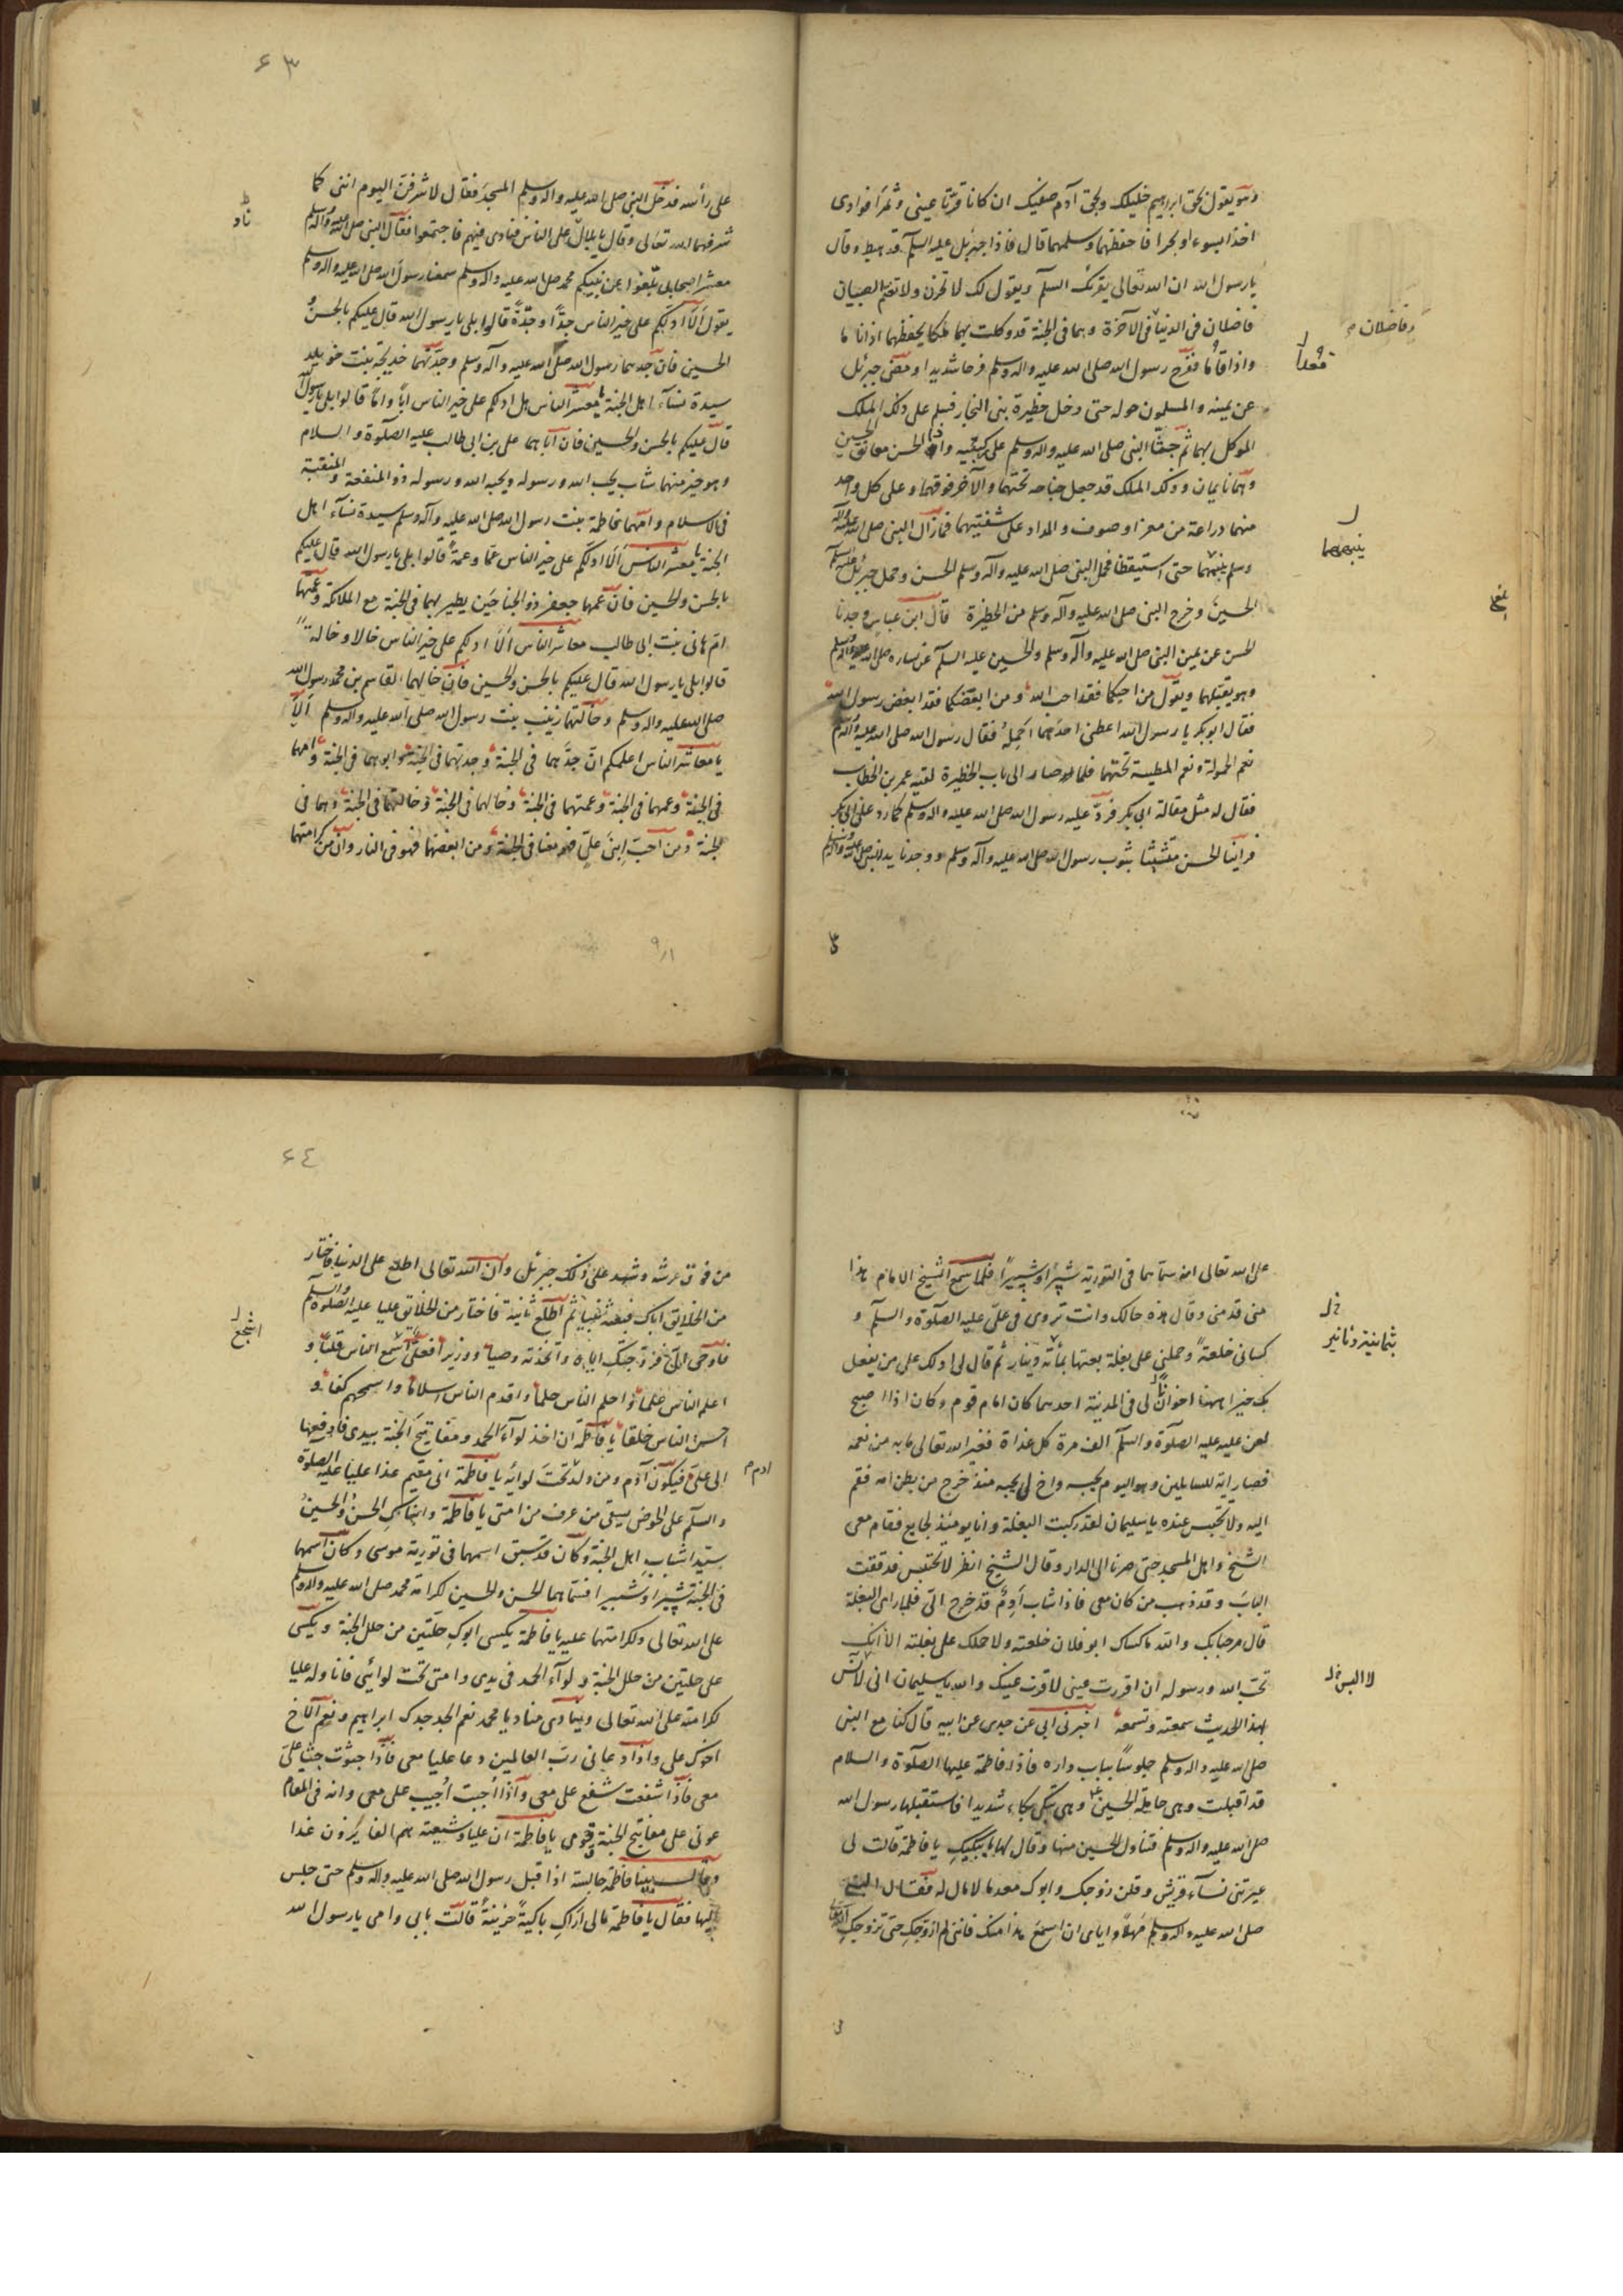 وهو يقول بحق ابراهيم خليلك وبحق آدم صفيك ان كانا قرتا عيني وثمرا فوادي
اخذا بسوء او بحرا فاحفظهما وسلمهما قال فاذا جبرئيل عليه السلم قد هبط وقال
يا رسول الله ان الله تعالى يقرئك السلم ويقول لك لا تحزن ولا تغتم الصبيان
فاضلان في الدنيا في الآخرة وهما في الجنة قد وكلت بهما ملكا يحفظهما اذا ناما
وفاضلان
واذا قاما ففرح رسول الله صلى الله عليه واله وسلم فرحا شديدا ومضى جبرئيل
قعدا
عن يمينه والمسلمون حوله حتى دخل حظيرة بني النجار فسلم على ذلك الملك
الموكل بهما ثم جثا النبي صلى الله عليه واله وسلم على ركبتيه واذا الحسن معانق الحسين
وهما نايمان وذلك الملك قد جعل جناحه تحتهما والآخر فوقهما وعلى كل واحد
منهما دراعة من شعر او صوف والمداد على شفتيهما فما زال النبي صلى الله عليه وآله
وسلم ينبههما حتى استيقظا فحمل النبي صلى الله عليه وآله وسلم الحسن وحمل جبرئيل عليه السلم
ينبههما
الحسين وخرج النبي صلى الله عليه وآله وسلم من الحظيرة قال ابن عباس وجدنا
الحسن عن يمين النبي صلى الله عليه وآله وسلم والحسين عليه السلم عن يساره صلى الله عليه وآله وسلم
وهو يقبلهما ويقول من احبكما فقد احب الله ومن ابغضكما فقد ابغض رسول الله
فقال ابو بكر يا رسول الله اعطني احدهما احمله فقال رسول الله صلى الله عليه وآله وسلم
نعم الحمولة ونعم المطية تحتهما فلما صار الى باب الحظيرة لقيه عمر بن الخطاب
فقال له مثل مقالة ابي بكر فرد عليه رسول الله صلى الله عليه واله وسلم كما رد على ابي بكر
فراينا الحسن متشبثا بثوب رسول الله صلى الله عليه وآله وسلم ووجدنا يد النبي صلى الله عليه وآله وسلم
٦٣
على رأسه فدخل النبي صلى الله عليه واله وسلم المسجد فقال لاشرفن اليوم ابني كما
شرفهما الله تعالى وقال يا بلال على الناس فنادى فيهم فاجتمعوا فقال النبي صلى الله عليه وآله وسلم
ناد
معشر اصحابي بلغوا عن نبيكم محمد صلى الله عليه واله وسلم سمعنا رسول الله صلى الله عليه وآله وسلم
يقول الا ادلكم على خير الناس جدا وجدة قالوا بلى يا رسول الله قال عليكم بالحسن و
الحسين فان جدهما رسول الله صلى الله عليه وآله وسلم وجدتهما خديجة بنت خويلد
سيدة نسآء اهل الجنة يا معشر الناس هل ادلكم على خير الناس ابا واما قالوا بلى يا رسول الله
قال عليكم بالحسن والحسين فان اباهما علي بن ابي طالب عليه الصلوة والسلام
وهو خير منهما شاب يحب الله ورسوله ويحبه الله ورسوله ذو المنفعة والمنقبة
في الاسلام وامهما فاطمة بنت رسول الله صلى الله عليه وآله وسلم سيدة نسآء اهل
الجنة يا معشر الناس الا ادلكم على خير الناس عما وعمة قالوا بلى يا رسول الله قال عليكم
بالحسن والحسين فان عمهما جعفر ذو الجناحين يطير بهما في الجنة مع الملائكة وعمتهما
ام هاني بنت ابي طالب معاشر الناس الا ادلكم على خير الناس خالا وخالة
قالوا بلى يا رسول الله قال عليكم بالحسن والحسين فان خالهما القاسم بن محمد رسول الله
صلى الله عليه واله وسلم وخالتهما زينب بنت رسول الله صلى الله عليه واله وسلم الا
يا معاشر الناس اعلمكم ان جدهما في الجنة وجدتهما في الجنة وابوهما في الجنة وامهما
في الجنة وعمهما في الجنة وعمتهما في الجنة وخالهما في الجنة وخالتهما في الجنة وهما في
الجنة ومن احب ابني علي فهو معنا في الجنة ومن ابغضهما فهو في النار وان من كرامتهما
٩١
على الله تعالى انه سماهما في التورية شبرا وشبيرا فلما سمع الشيخ الامام هذا
مني قدمني وقال هذه حالك وانت تروي في علي عليه الصلوة والسلم و
كساني خلعة وحملني على بغلة بعتها بمأة دينار ثم قال لي ادلك على من يفعل
بثمانية دنانير
بك خيرا ههنا اخوان لي في المدينة احدهما كان امام قوم وكان اذا اصبح
لعن عليا عليه الصلوة والسلم الف مرة كل غداة فغير الله تعالى ما به من نعمه
فصار اية للسايلين وهو اليوم يحبه واخ لي يحبه منذ خرج من بطن امه فقم
اليه ولا تحتبس عنده يا سليمان لقد ركبت البغلة وانا يومئذ لجايع فقام معي
الشيخ واهل المسجد حتى صرنا الى الدار وقال الشيخ انظر لا تحتبس فدققت
الباب وقد ذهب من كان معي فاذا شاب ادم قد خرج الي فلما راى البغلة
قال مرحبا بك والله ما كساك ابو فلان خلعته ولا حملك على بغلته الا انك
تحب الله ورسوله ان اقررت عيني لاقرن عينك والله يا سليمان اني لآنس
بهذا الحديث سمعته وتسمعه اخبرني ابي عن جدي عن ابيه قال كنا مع النبي
صلى الله عليه واله وسلم جلوسا بباب داره فاذا فاطمة عليها الصلوة والسلام
قد اقبلت وهي حاملة الحسين وهي تبكي بكاء شديدا فاستقبلها رسول الله
صلى الله عليه واله وسلم فتناول الحسين منها وقال لها ما يبكيك يا فاطمة قالت لي
عيرتني نسآء قريش وقلن زوجك وابوك معدما لا مال له فقال النبي
صلى الله عليه واله وسلم مهلا واياى ان اسمع هذا منك فاني لم ازوجك حتى زوجك الله تعالى
٦٤
من فوق عرشه وشهد على ذلك جبرئيل وان الله تعالى اطلع على الدنيا فاختار
من الخلايق اباك فبعثه نبيا ثم اطلع ثانية فاختار من الخلايق عليا عليه الصلوة والسلم
فاوحى الي فزوجتك اياه واتخذته وصيا ووزيرا فعلي اشجع الناس قلبا و
اشجع
اعلم الناس علما واحلم الناس حلما واقدم الناس اسلاما واسمحهم كفا و
احسن الناس خلقا يا فاطمة ان اخذ لوآء الحمد ومفاتيح الجنة بيدي فادفعها
الى علي فيكون آدم ومن ولد تحت لوائه يا فاطمة اني مقيم غدا عليا عليه الصلوة
ادم
والسلم على الحوض يسقي من عرف من امتي يا فاطمة وابناك الحسن والحسين
سيدا شباب اهل الجنة وكان قد سبق اسمهما في تورية موسى وكان اسمهما
في الجنة شبرا وشبيرا فسماهما الحسن والحسين لكرامة محمد صلى الله عليه واله وسلم
على الله تعالى ولكرامتهما عليه يا فاطمة يكسى ابوك حلتين من حلل الجنة ويكسى
علي حلتين من حلل الجنة ولوآء الحمد في يدي وامتي تحت لوائي فاناوله عليا
لكرامته على الله تعالى وينادي مناد يا محمد نعم الجد جدك ابراهيم ونعم الاخ
اخوك علي واذا دعاني رب العالمين دعا عليا معي فاذا جثوت جثا علي
معي فاذا شفعت شفع علي معي واذا اجبت اجيب علي معي وانه في المقام
عوني على مفاتيح الجنة قومي يا فاطمة ان عليا وشيعته هم الفايزون غدا
وقال بينا فاطمة جالسة اذ اقبل رسول الله صلى الله عليه واله وسلم حتى جلس
اليها فقال يا فاطمة ما لي اراك باكية حزينة قالت بابي وامي يا رسول الله